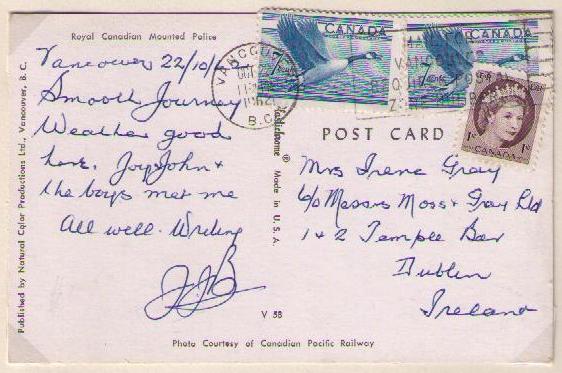 Royal Canadian Mounted Police
Vancouver 22/10/6
Smooth Journey
Weather good
here. Joy, John +
the boys met me
All well. Writing
JJB
Published by Natural Color Productions Ltd., Vancouver, B.C.
Made in U.S.A.
V 58
Photo Courtesy of Canadian Pacific Railway
CANADA
7 cents
CANADA
7 cents
1¢
CANADA
1¢
VANCOUVER
OCT
1962
B.C.
VANCOUVER
POSTAL
POST CARD
Mrs Irene Gray
c/o Messrs Moss & Gray Ltd
1 + 2 Temple Bar
Dublin
Ireland